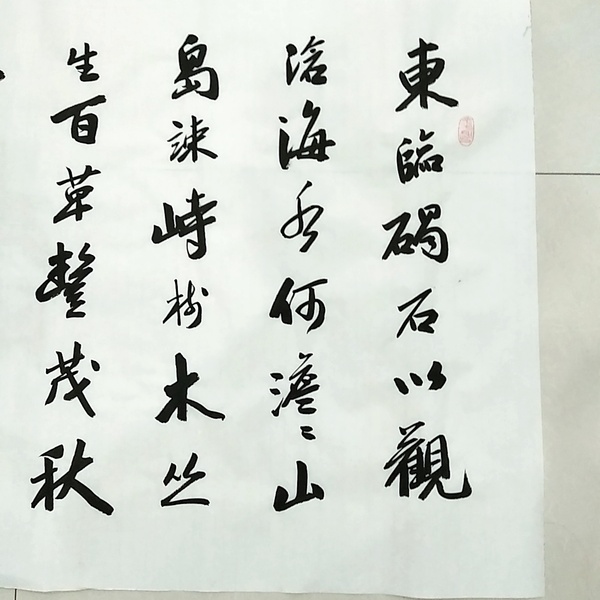 東臨碣石以觀
滄海水何澹〻山
島竦峙樹木丛
生百草豐茂秋